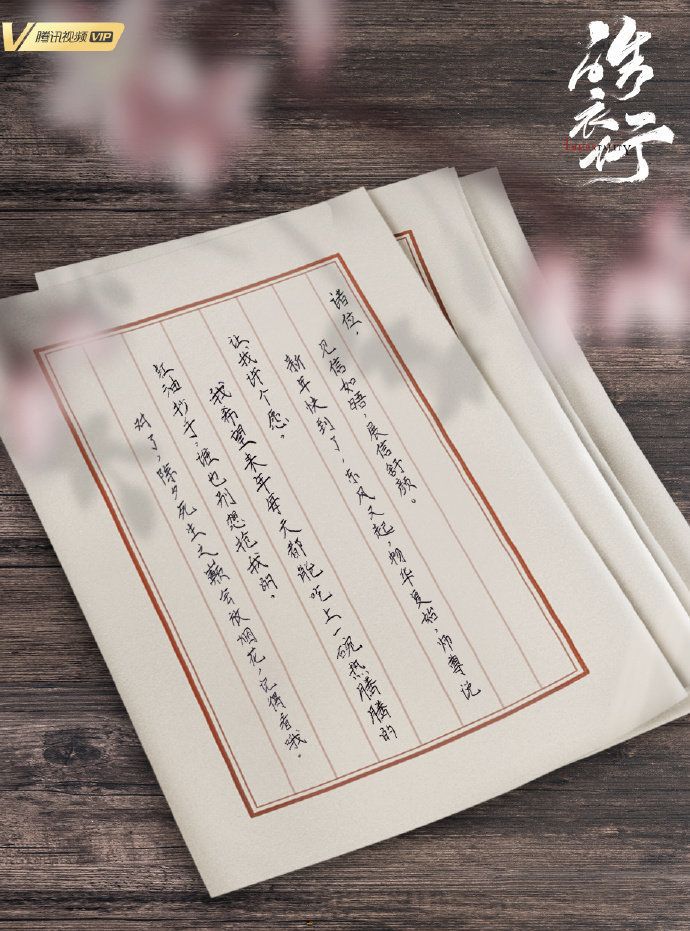 腾讯视频 VIP
皓衣行
IMMORTALITY
诸位,
见信如晤,展信舒颜。
新年快到了,东风又起,物华复始,师尊说
让我许个愿。
我希望来年每天都能吃上一碗热腾腾的
红油抄手,谁也别想抢我的。
对了,除夕死生之巅会放烟花,记得看我。